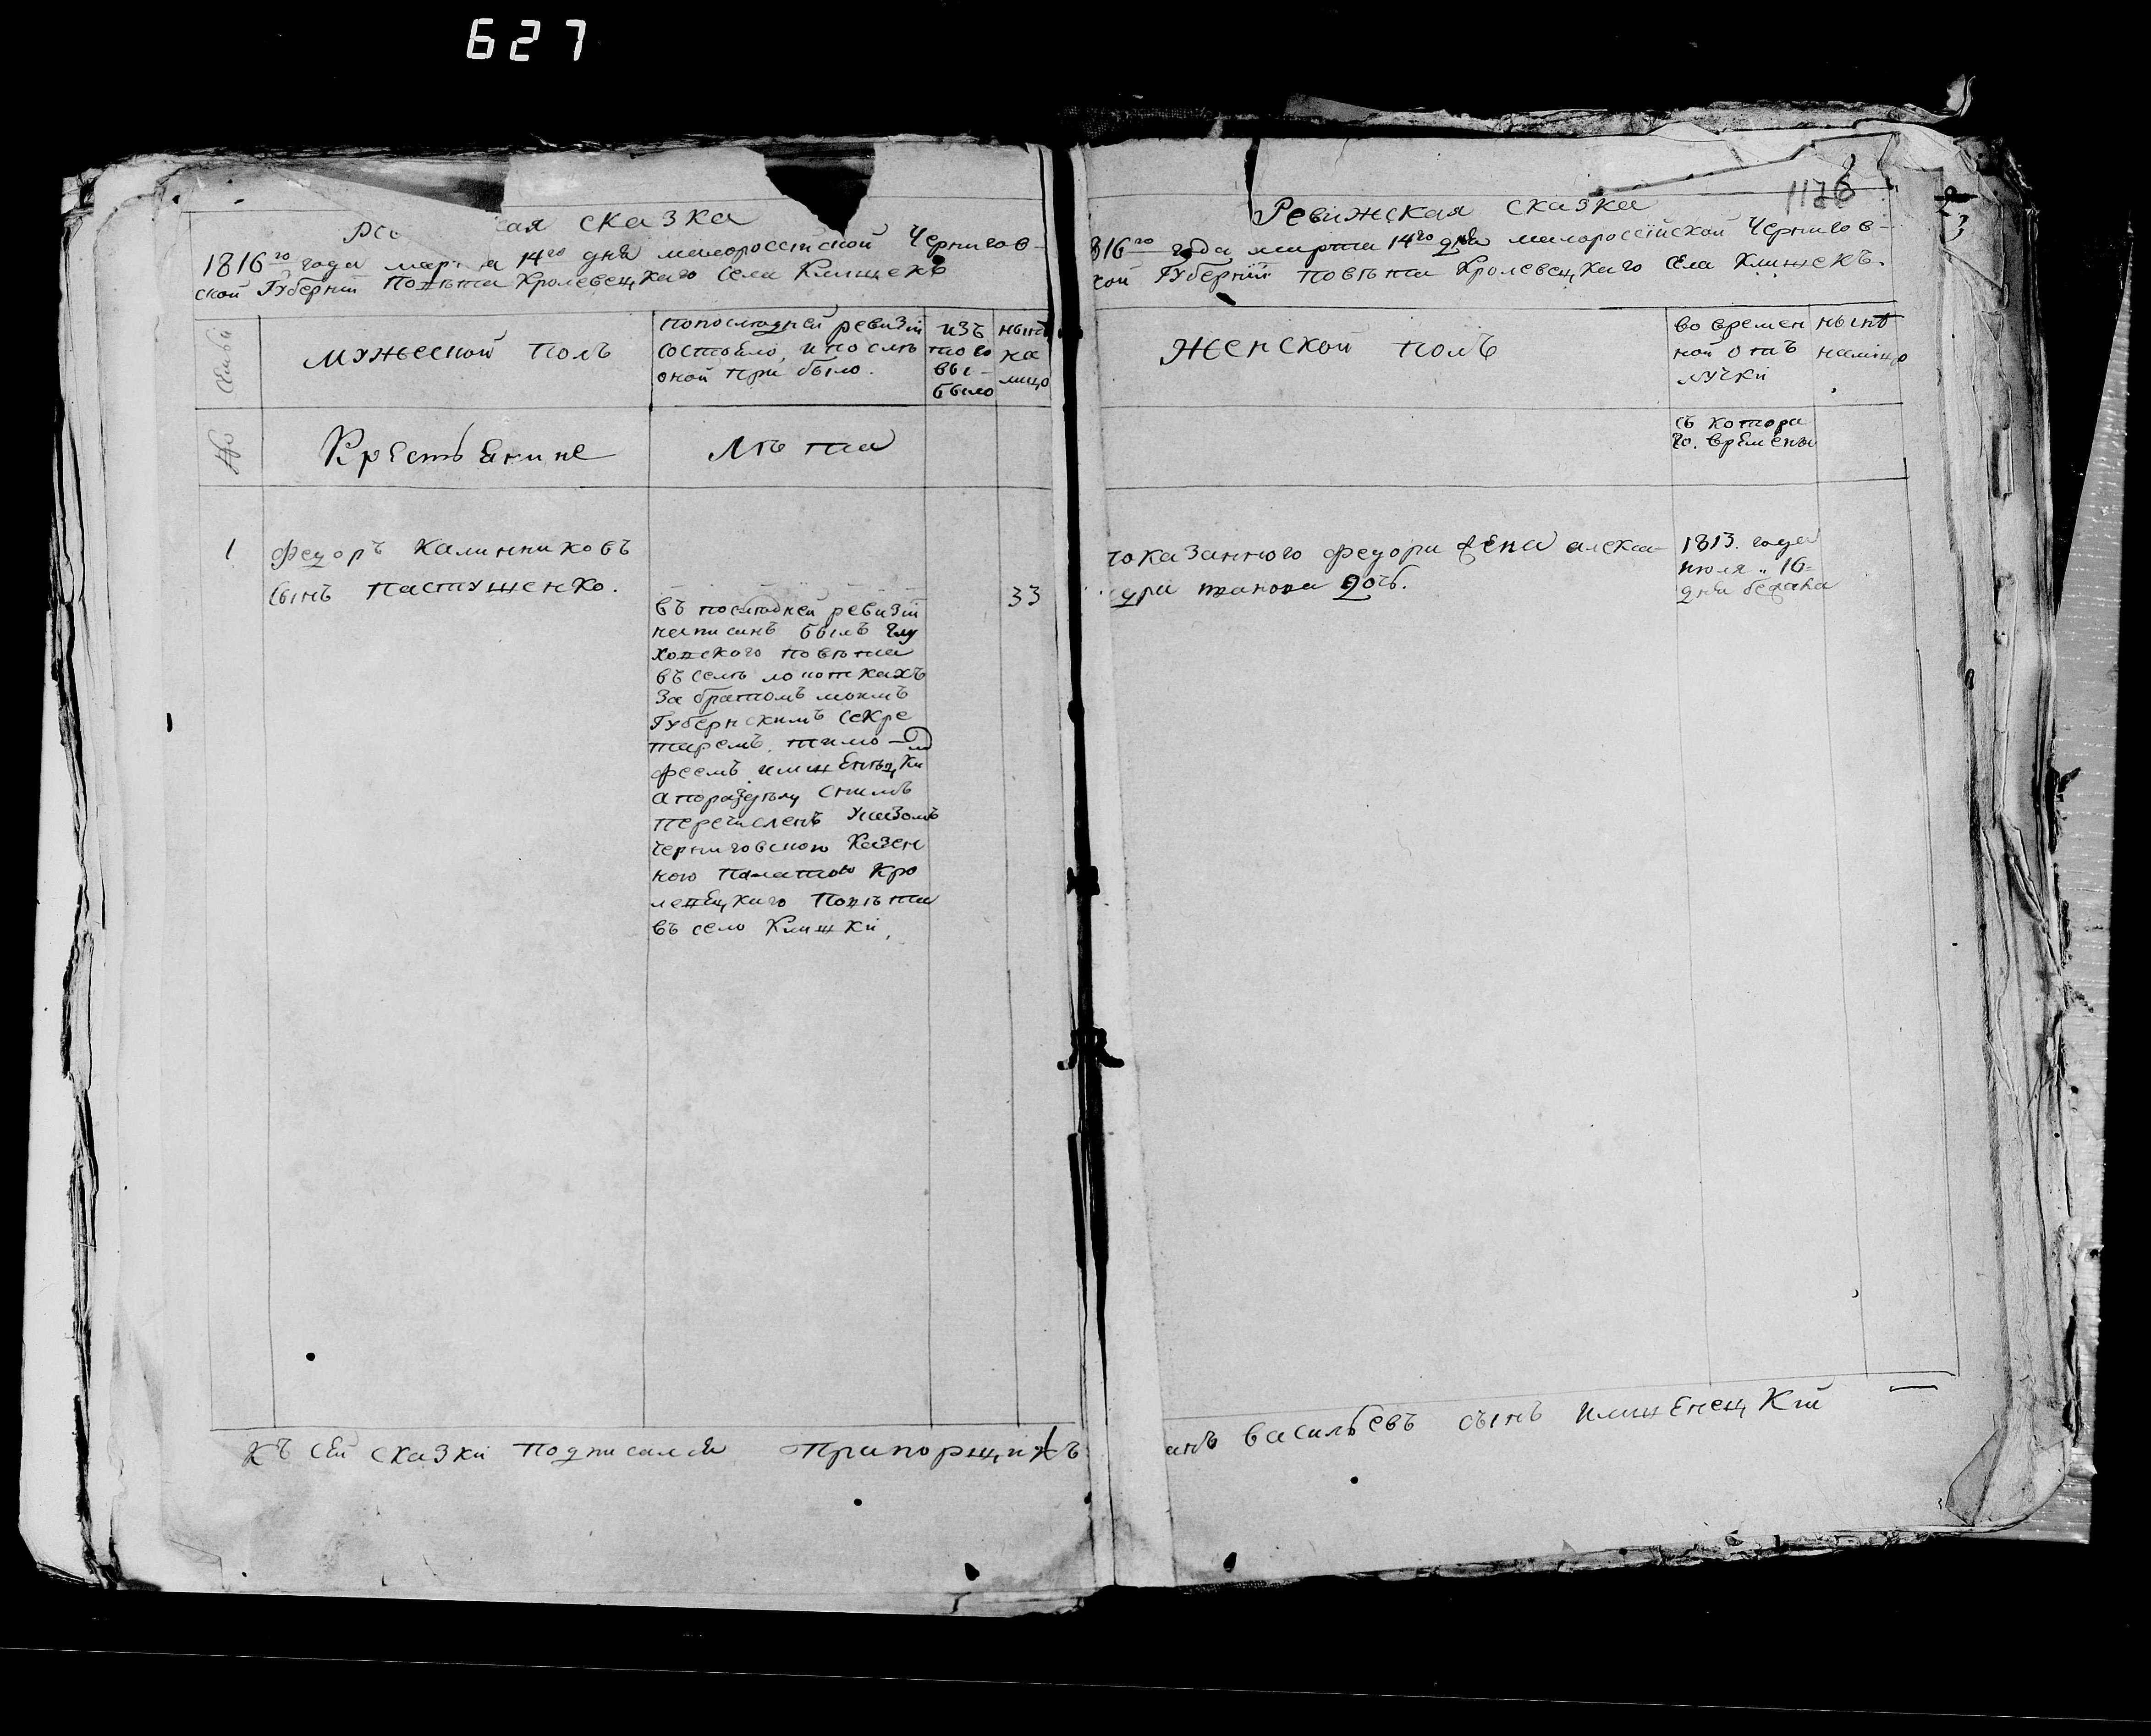 627
ская сказка
1816го года марта 14го дня малороссійской Чернигов-
ской Губерніи Повѣта Кролевецкаго Села Клишекъ
Семьи
мужеской полъ
попоследней ревизіи
состояло, и после
оной при было.
изъ
того
вы-
было
нынѣ
на
лицо
№
Крестьянине
Лѣта
1
Федоръ Калинниковъ
сынъ пастушенко.
33
въ последней ревизіи
написанъ былъ глу
ховского повѣта
въ селѣ лопоткахъ
за братомъ моимъ
Губернскимъ секре
таремъ тимо-
феемъ
а поразделу снимъ
перечисленъ Указомъ
черниговскою Казен
ною Палатою Кро
левецкаго Повѣта
въ село Клишки,
къ сей сказки подписался Прапорщикъ
1176
2
3
Ревижская сказка
816го года марта 14го дня малороссійской Чернигов-
кой Губерніи повѣта Кролевецкаго Села Клишекъ.
женской полъ
во времен
ной от
лучки
нынѣ
налицо
съ котора
го. времены
показанного федора жена алекса-
дочь.
1813. года
июля „ 16-
дня бежала
анъ васильевъ сынъ